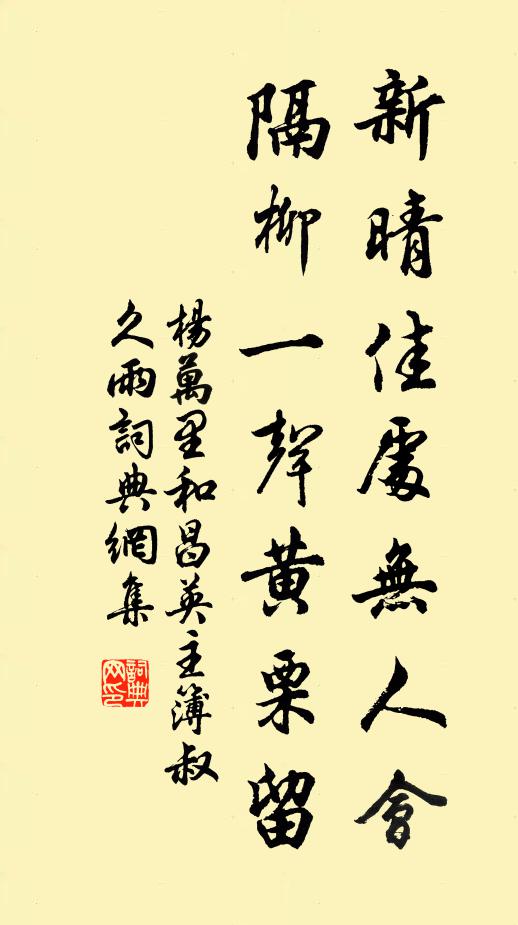 新晴佳處無人會
隔柳一聲黃栗留
楊萬里和昌英主簿叔
久雨詞典網集
詞典网印